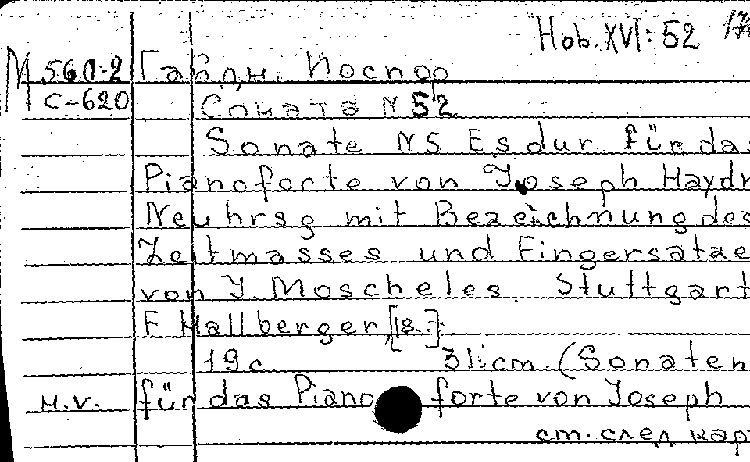 Hob. XVI: 52
М 560-2 Гайдн. Йосиф
С-620 Соната N 52
Sonate N5 Es dur für das
Pianoforte von Joseph Haydn
Neuhrsg mit Bezeichnung des
Zeitmasses und Fingersatze
von J. Moscheles. Stuttgart
F Hallberger, [18-]
19 c 31 cm. (Sonaten
н.v. für das Pianoforte von Joseph
см. след кар